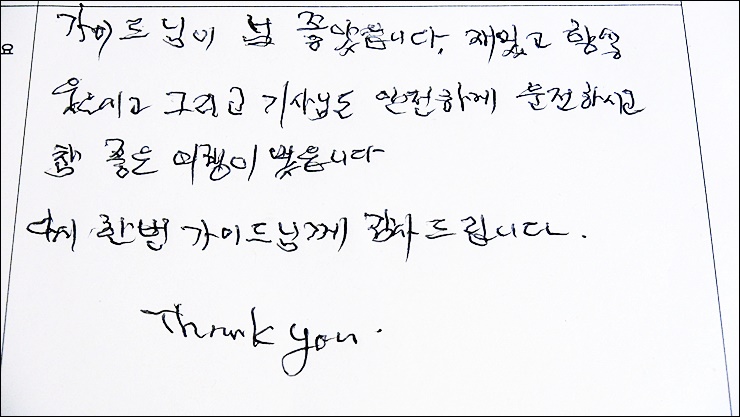 가이드님이 넘 좋았습니다, 재밌고 항상
웃으시고 그리고 기사님도 안전하게 운전하시고
참 좋은 여행이 였읍니다
다시 한번 가이드님께 감사드립니다.
Thank you.
요